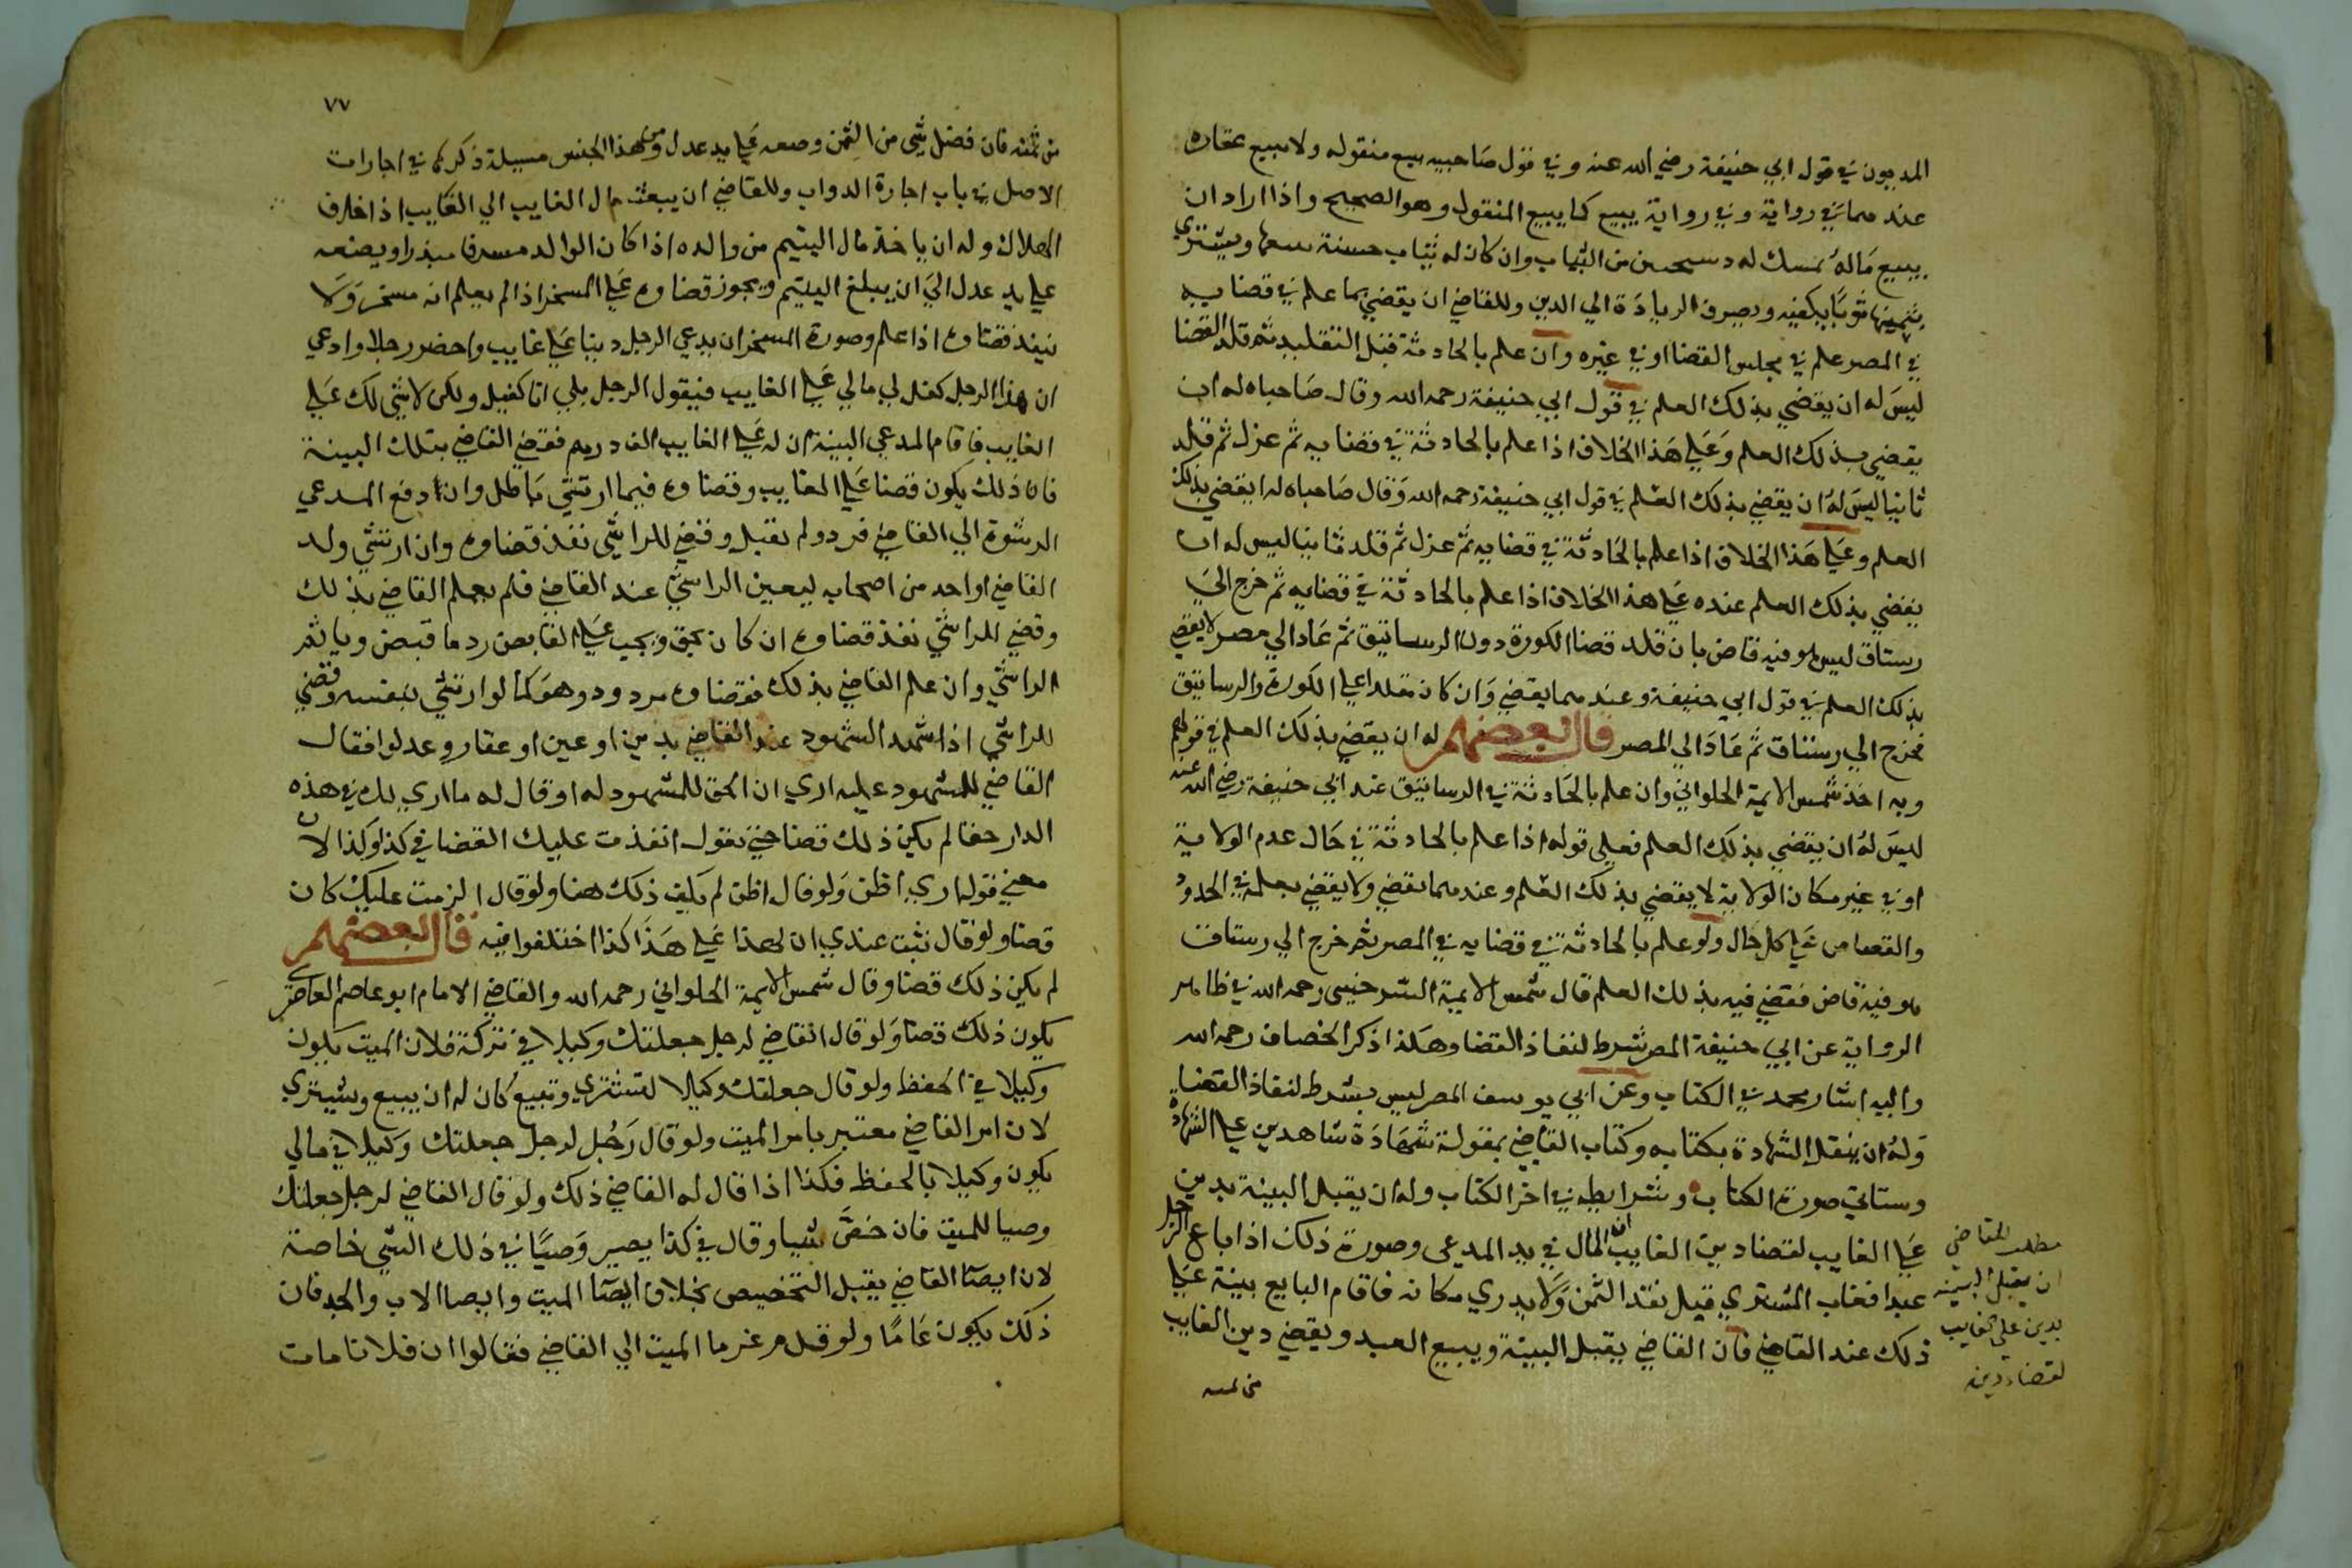 المديون في قول ابي حنيفة رضي الله عنه وفي قول صاحبيه يبيع منقوله ولا يبيع عقاره
عندهما في رواية وفي رواية يبيع كما يبيع المنقول وهو الصحيح واذا اراد ان
يبيع ماله يمسك له دستجتين من الثياب وان كان له ثياب حسنة يبيعها ويشتري
بثمنها ثوبا يكفيه ويصرف الزيادة الي الدين وللقاضي ان يقضي بما علم في قضايه
في المصر علم في مجلس القضا او في غيره وان علم بالحادثة قبل التقليد ثم قلد القضا
ليس له ان يقضي بذلك العلم في قول ابي حنيفة رحمه الله وقال صاحباه له ان
يقضي بذلك العلم وعلي هذا الخلاف اذا علم بالحادثة في قضايه ثم عزل ثم قلد
ثانيا ليس له ان يقضي بذلك العلم في قول ابي حنيفة رحمه الله وقال صاحباه له ان يقضي بذلك
العلم وعلي هذا الخلاف اذا علم بالحادثة في قضايه ثم عزل ثم قلد ثانيا ليس له ان
يقضي بذلك العلم عنده علي هذا الخلاف اذا علم بالحادثة في قضايه ثم خرج الي
رستاق ليس هو فيه قاض بان قلد قضا الكورة دون الرساتيق ثم عاد الي مصر لا يقضي
بذلك العلم في قول ابي حنيفة وعندهما يقضي وان كان مقلدا علي الكورة والرساتيق
فخرج الي رستاق ثم عاد الي المصر قال بعضهم له ان يقضي بذلك العلم في قولهم
وبه اخذ شمس الايمة الحلواني وان علم بالحادثة في الرساتيق عند ابي حنيفة رضي الله عنه
ليس له ان يقضي بذلك العلم فعلي قوله اذا علم بالحادثة في حال عدم الولاية
او في غير مكان الولاية لا يقضي بذلك العلم وعندهما يقضي ولا يقضي بعلمه في الحدود
والقصاص علي كل حال ولو علم بالحادثة في قضايه في المصر ثم خرج الي رستاق
هو فيه قاض فقضي فيه بذلك العلم قال شمس الايمة السرخسي رحمه الله في ظاهر
الرواية عن ابي حنيفة المصر شرط لنفاذ القضا وهكذا ذكر الخصاف رحمه الله
واليه اشار محمد في الكتاب وعن ابي يوسف المصر ليس بشرط لنفاذ القضا
وله ان ينقل الشهادة بكتابه وكتاب القاضي بمقولة شهادة شاهدين علي الشهادة
وستاتي صورة الكتاب وشرايطه في اخر الكتاب وله ان يقبل البينة بدين
علي الغايب لقضا دين الغايب ان المال في يد المدعي وصورة ذلك اذا باع الرجل
عبدا فغاب المشتري قبل نقد الثمن ولا يدري مكانه فاقام البايع بينة علي
ذلك عند القاضي فان القاضي يقبل البينة ويبيع العبد ويقضي دين الغايب
من ثمنه
مطلب للقاضي
ان يقبل البينة
بدين علي الغايب
لقضاء دينه
٧٧
من ثمنه فان فضل شي من الثمن وضعه علي يد عدل ومن هذا الجنس مسيلة ذكرها في اجارات
الاصل في باب اجارة الدواب وللقاضي ان يبعث مال الغايب الي الغايب اذا خاف
الهلاك وله ان ياخذ مال اليتيم من والده اذا كان الوالد مسرفا مبذرا ويضعه
علي يد عدل الي ان يبلغ اليتيم ويجوز قضاوه علي المسخر اذا لم يعلم انه مسخر ولا
ينفذ قضاوه اذا علم وصورة المسخر ان يدعي الرجل دينا علي غايب واحضر رجلا وادعي
ان هذا الرجل كفل لي مالي علي الغايب فيقول الرجل بلي انا كفيل ولكن لا شي لك علي
الغايب فاقام المدعي البينة ان له علي الغايب الف درهم فقضي القاضي بتلك البينة
فان ذلك يكون قضا علي الغايب وقضاوه فيما ارتشي باطل وان دفع المدعي
الرشوة الي القاضي فرد ولم يقبل وقضي للراشي نفذ قضاوه وان ارتشي ولد
القاضي او احد من اصحابه ليعين الراشي عند القاضي فلم يعلم القاضي بذلك
وقضي للراشي نفذ قضاوه ان كان بحق ويجب علي القابض رد ما قبض وياثم
الراشي وان علم القاضي بذلك فقضاوه مردود وهو كما لو ارتشي بنفسه وقضي
للراشي اذا شهد الشهود عند القاضي بدين او عين او عقار وعدلوا فقال
القاضي للمشهود عليه اري ان الحق للمشهود له او قال له ما اري لك في هذه
الدار حقا لم يكن ذلك قضا حتي يقول انفذت عليك القضا في كذا وكذا لان
معني قوله اري اظن ولو قال اظن لم يكن ذلك قضا ولو قال الزمت عليك كان
قضا ولو قال ثبت عندي ان لهذا علي هذا كذا اختلفوا فيه قال بعضهم
لم يكن ذلك قضا وقال شمس الايمة الحلواني رحمه الله والقاضي الامام ابو عاصم العامري
يكون ذلك قضا ولو قال القاضي لرجل جعلتك وكيلا في تركة فلان الميت يكون
وكيلا في الحفظ ولو قال جعلتك وكيلا لتشتري وتبيع كان له ان يبيع ويشتري
لان امر القاضي معتبر بامر الميت ولو قال رجل لرجل جعلتك وكيلا في مالي
يكون وكيلا بالحفظ فكذا اذا قال له القاضي ذلك ولو قال القاضي لرجل جعلتك
وصيا للميت فان خص شيا وقال في كذا يصير وصيا في ذلك الشي خاصة
لان ايصا القاضي يقبل التخصيص بخلاف ايصا الميت وايصا الاب والجد فان
ذلك يكون عاما ولو قدم غرما الميت الي القاضي فقالوا ان فلانا مات